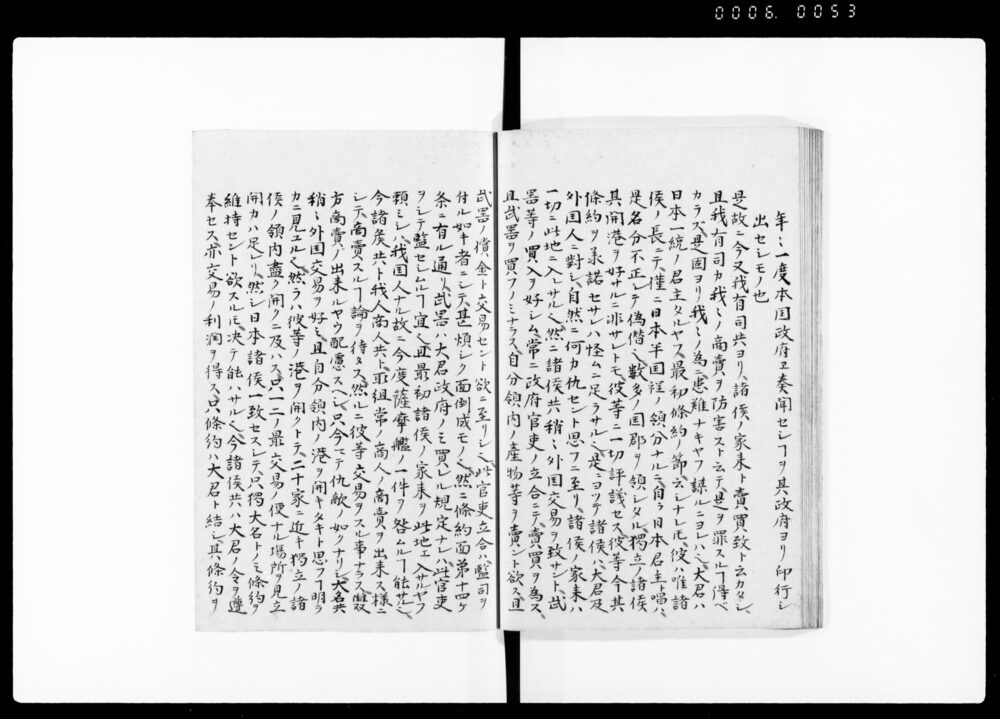 0006.0053
年〻一度本国政府ヱ奏聞セシヿヲ其政府ヨリ印行シ
出セシモノ也
是故ニ今又我有司共ヨリ諸侯ノ家来ト賣買致ト云カタシ
且我有司カ我〻ノ商賣ヲ防害スト云テ是ヲ罪スルヿ得ベ
カラズ是固ヨリ我〻ノ為ニ患難ナキヤフ謀ルニヨレハ也大君ハ
日本一統ノ君主タルヤフ最初條約ノ節云シナレ𪜈彼ハ唯諸
侯ノ長ニテ僅ニ日本半国程ノ領分ナルニ自ラ日本君主ト唱ハ
是名分不正シテ偽僭也数多ノ国郡ヲ領シタル獨立ノ諸侯
其開港ヲ好サルニ非サレト𪜈彼等ニ一切評議セス彼等今其
條約ヲ承諾セサルハ怪ムニ足ラサル也是ヨツテ諸侯ハ大君及
外国人ニ對シ自然ニ何カ仇セント思フニ至リ諸侯ノ家来ハ
一切ニ此地ニ入レサル也然ニ諸侯共稍〻外国交易ヲ致サント武
器等ノ買入ヲ好シム常ニ政府官吏ノ立合ニテ賣買ヲ為ス
且武器ヲ買フノミナラス自分領内ノ産物等ヲ賣ント欲ス且
武器ノ償金ト交易セント欲ニ至リシ也此官吏立合ハ監司ヲ
付ル如キ者ニシテ甚煩シク面倒成モノ也然ニ條約面第十四ケ
条ニ有ル通リ武器ハ大君政府ノミ買レル規定ナレハ此官吏
ヲシテ監セシムルヿ宜也且最初諸侯ノ家来ヲ此地エ入サルヤフ
頼ミシハ我国人ナル故ニ今度薩摩艦ノ一件ヲ咎ムルヿ能サル也
今諸矦共ト我人商人共ト取組常ノ商人ノ商賣ヲ出来ス様ニ
シテ商賣スルヿ論ヲ待タス然ルニ彼等交易ヲスル事ナラス雙
方商賣ノ出来ルヤウ配慮スヘシ只今マテ仇敵ノ如クナリシ大名共
稍〻外国交易ヲ好ミ且自分領内ノ港ヲ開キタキト思フヿ明ラ
カニ見エル也然ラハ彼等ノ港ヲ開クトテ二十家ニ近キ獨立ノ諸
侯ノ領内盡ク開クニ及ハス只一二ノ最交易ノ便ナル場所ヲ見立
開カハ足レリ然シ日本諸侯一致セスシテ只獨大名トノミ條約ヲ
維持セント欲スル𪜈決テ能ハサル也今諸侯共ハ大君ノ令ヲ遵
奉セス亦交易ノ利潤ヲ得ス只條約ハ大君ト結シ其條約ヲ